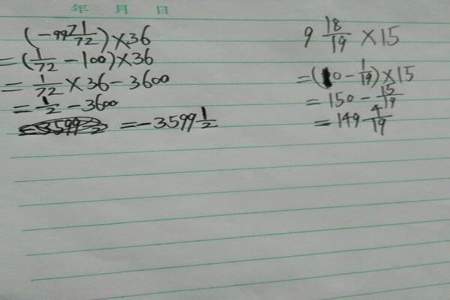 年 月 日
(-99 71/72) × 36
= (1/72 - 100) × 36
= 1/72 × 36 - 3600
= 1/2 - 3600
= -3599 1/2
9 18/19 × 15
= (10 - 1/19) × 15
= 150 - 15/19
= 149 4/19